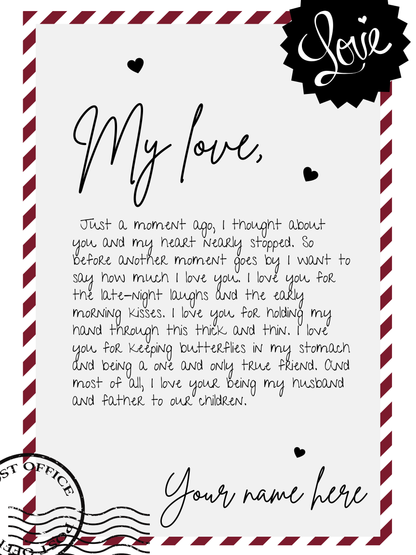 Love
My love,
Just a moment ago, I thought about
you and my heart nearly stopped. So
before another moment goes by I want to
say how much I love you. I love you for
the late-night laughs and the early
morning kisses. I love you for holding my
hand through this thick and thin. I love
you for keeping butterflies in my stomach
and being a one and only true friend. And
most of all, I love your being my husband
and father to our children.
Your name here
OST OFFICE
POST OFF